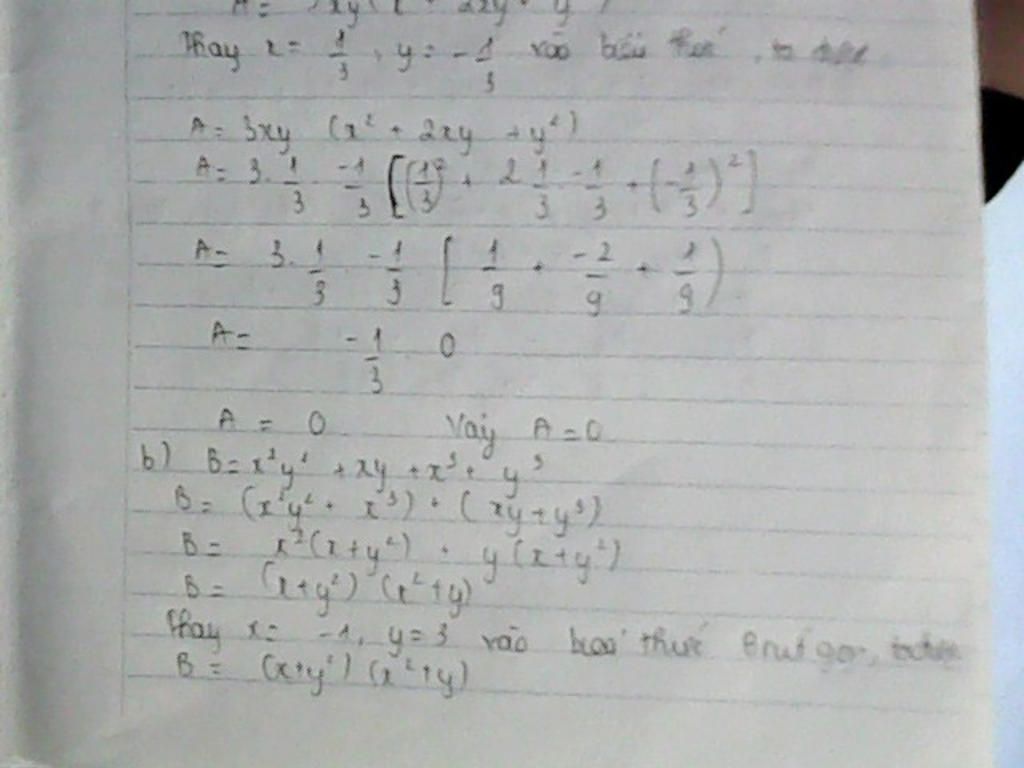 A = 3xy (x² + 2xy + y²)
Thay x = 1/3, y = -1/3 vào biểu thức, ta được
A = 3xy (x² + 2xy + y²)
A = 3. 1/3 . -1/3 [(1/3)² + 2 1/3 . -1/3 + (-1/3)²]
A = 3. 1/3 . -1/3 [1/9 + -2/9 + 1/9)
A = -1/3 . 0
A = 0 Vậy A = 0
b) B = x²y² + xy + x³ + y³
B = (x²y² + x³) + (xy + y³)
B = x²(x + y²) + y(x + y²)
B = (x + y²) (x² + y)
Thay x = -1, y = 3 vào biểu thức B rút gọn, ta được
B = (x + y²) (x² + y)